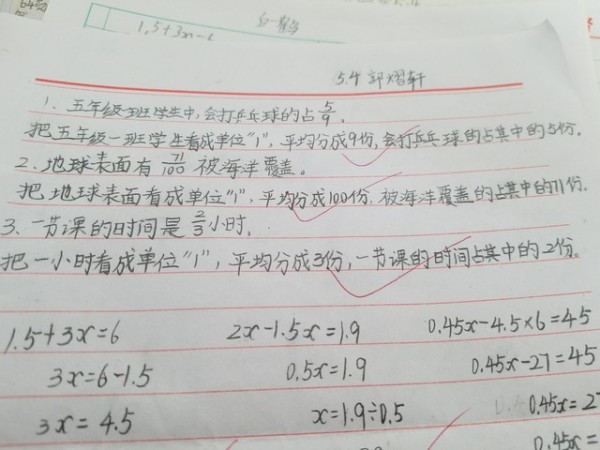 1.5+3x=6
5.4 郭熠轩
1、五年级一班学生中,会打乒乓球的占5/9。
把五年级一班学生看成单位"1",平均分成9份,会打乒乓球的占其中的5份。
2、地球表面有71/100被海洋覆盖。
把地球表面看成单位"1",平均分成100份,被海洋覆盖的占其中的71份。
3、一节课的时间是2/3小时.
把一小时看成单位"1",平均分成3份,一节课的时间占其中的2份。
1.5+3x=6 2x-1.5x=1.9 0.45x-4.5×6=45
3x=6-1.5 0.5x=1.9 0.45x-27=45
3x=4.5 x=1.9÷0.5 0.45x=2
0.45x=